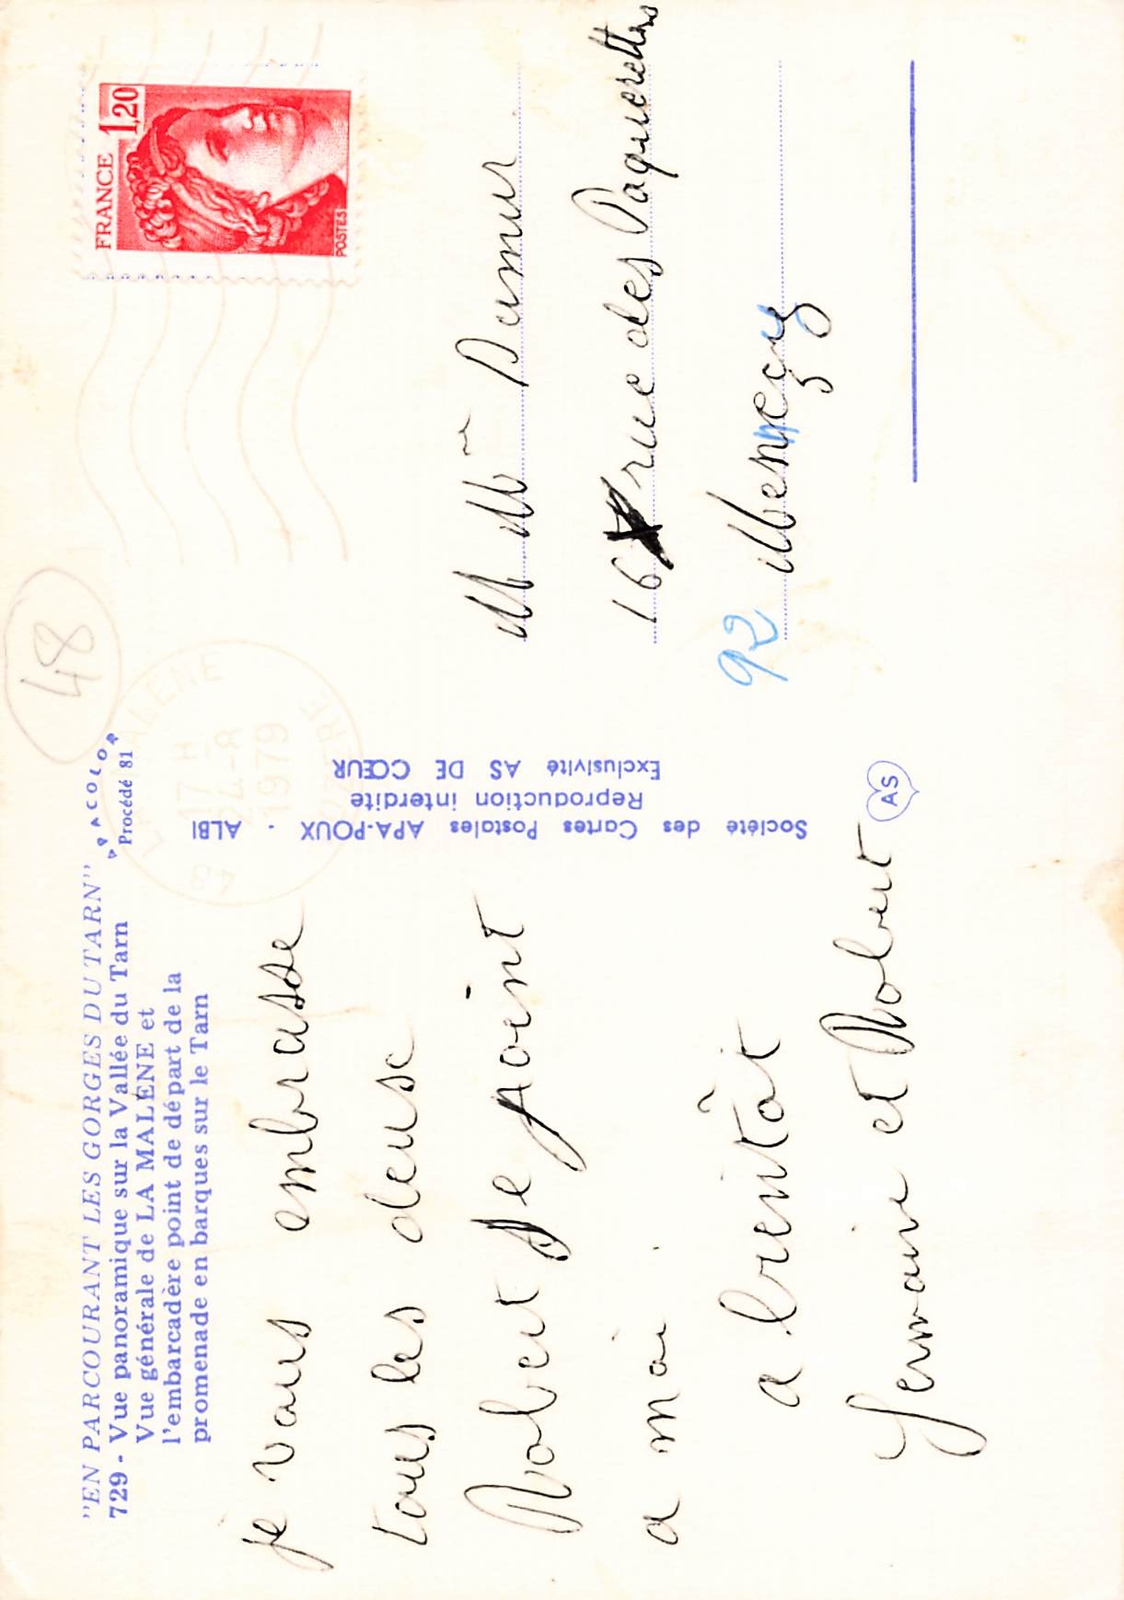 "EN PARCOURANT LES GORGES DU TARN"
729 - Vue panoramique sur la Vallée du Tarn
Vue générale de LA MALÈNE et
l'embarcadère point de départ de la
promenade en barques sur le Tarn
APACOLOR
Procédé 81
je vous embrasse
tous les deuse
Robert se joint
a moi
a bientôt
Germaine et Robert
Société des Cartes Postales APA-POUX - ALBI
Reproduction interdite
Exclusivité AS DE CŒUR
AS
48
LA MALENE
17 H
24-8
1979
48 LOZERE
FRANCE 1,20
POSTES
M Mme Dumur
16 rue des Paquerettes
92 Mennecy